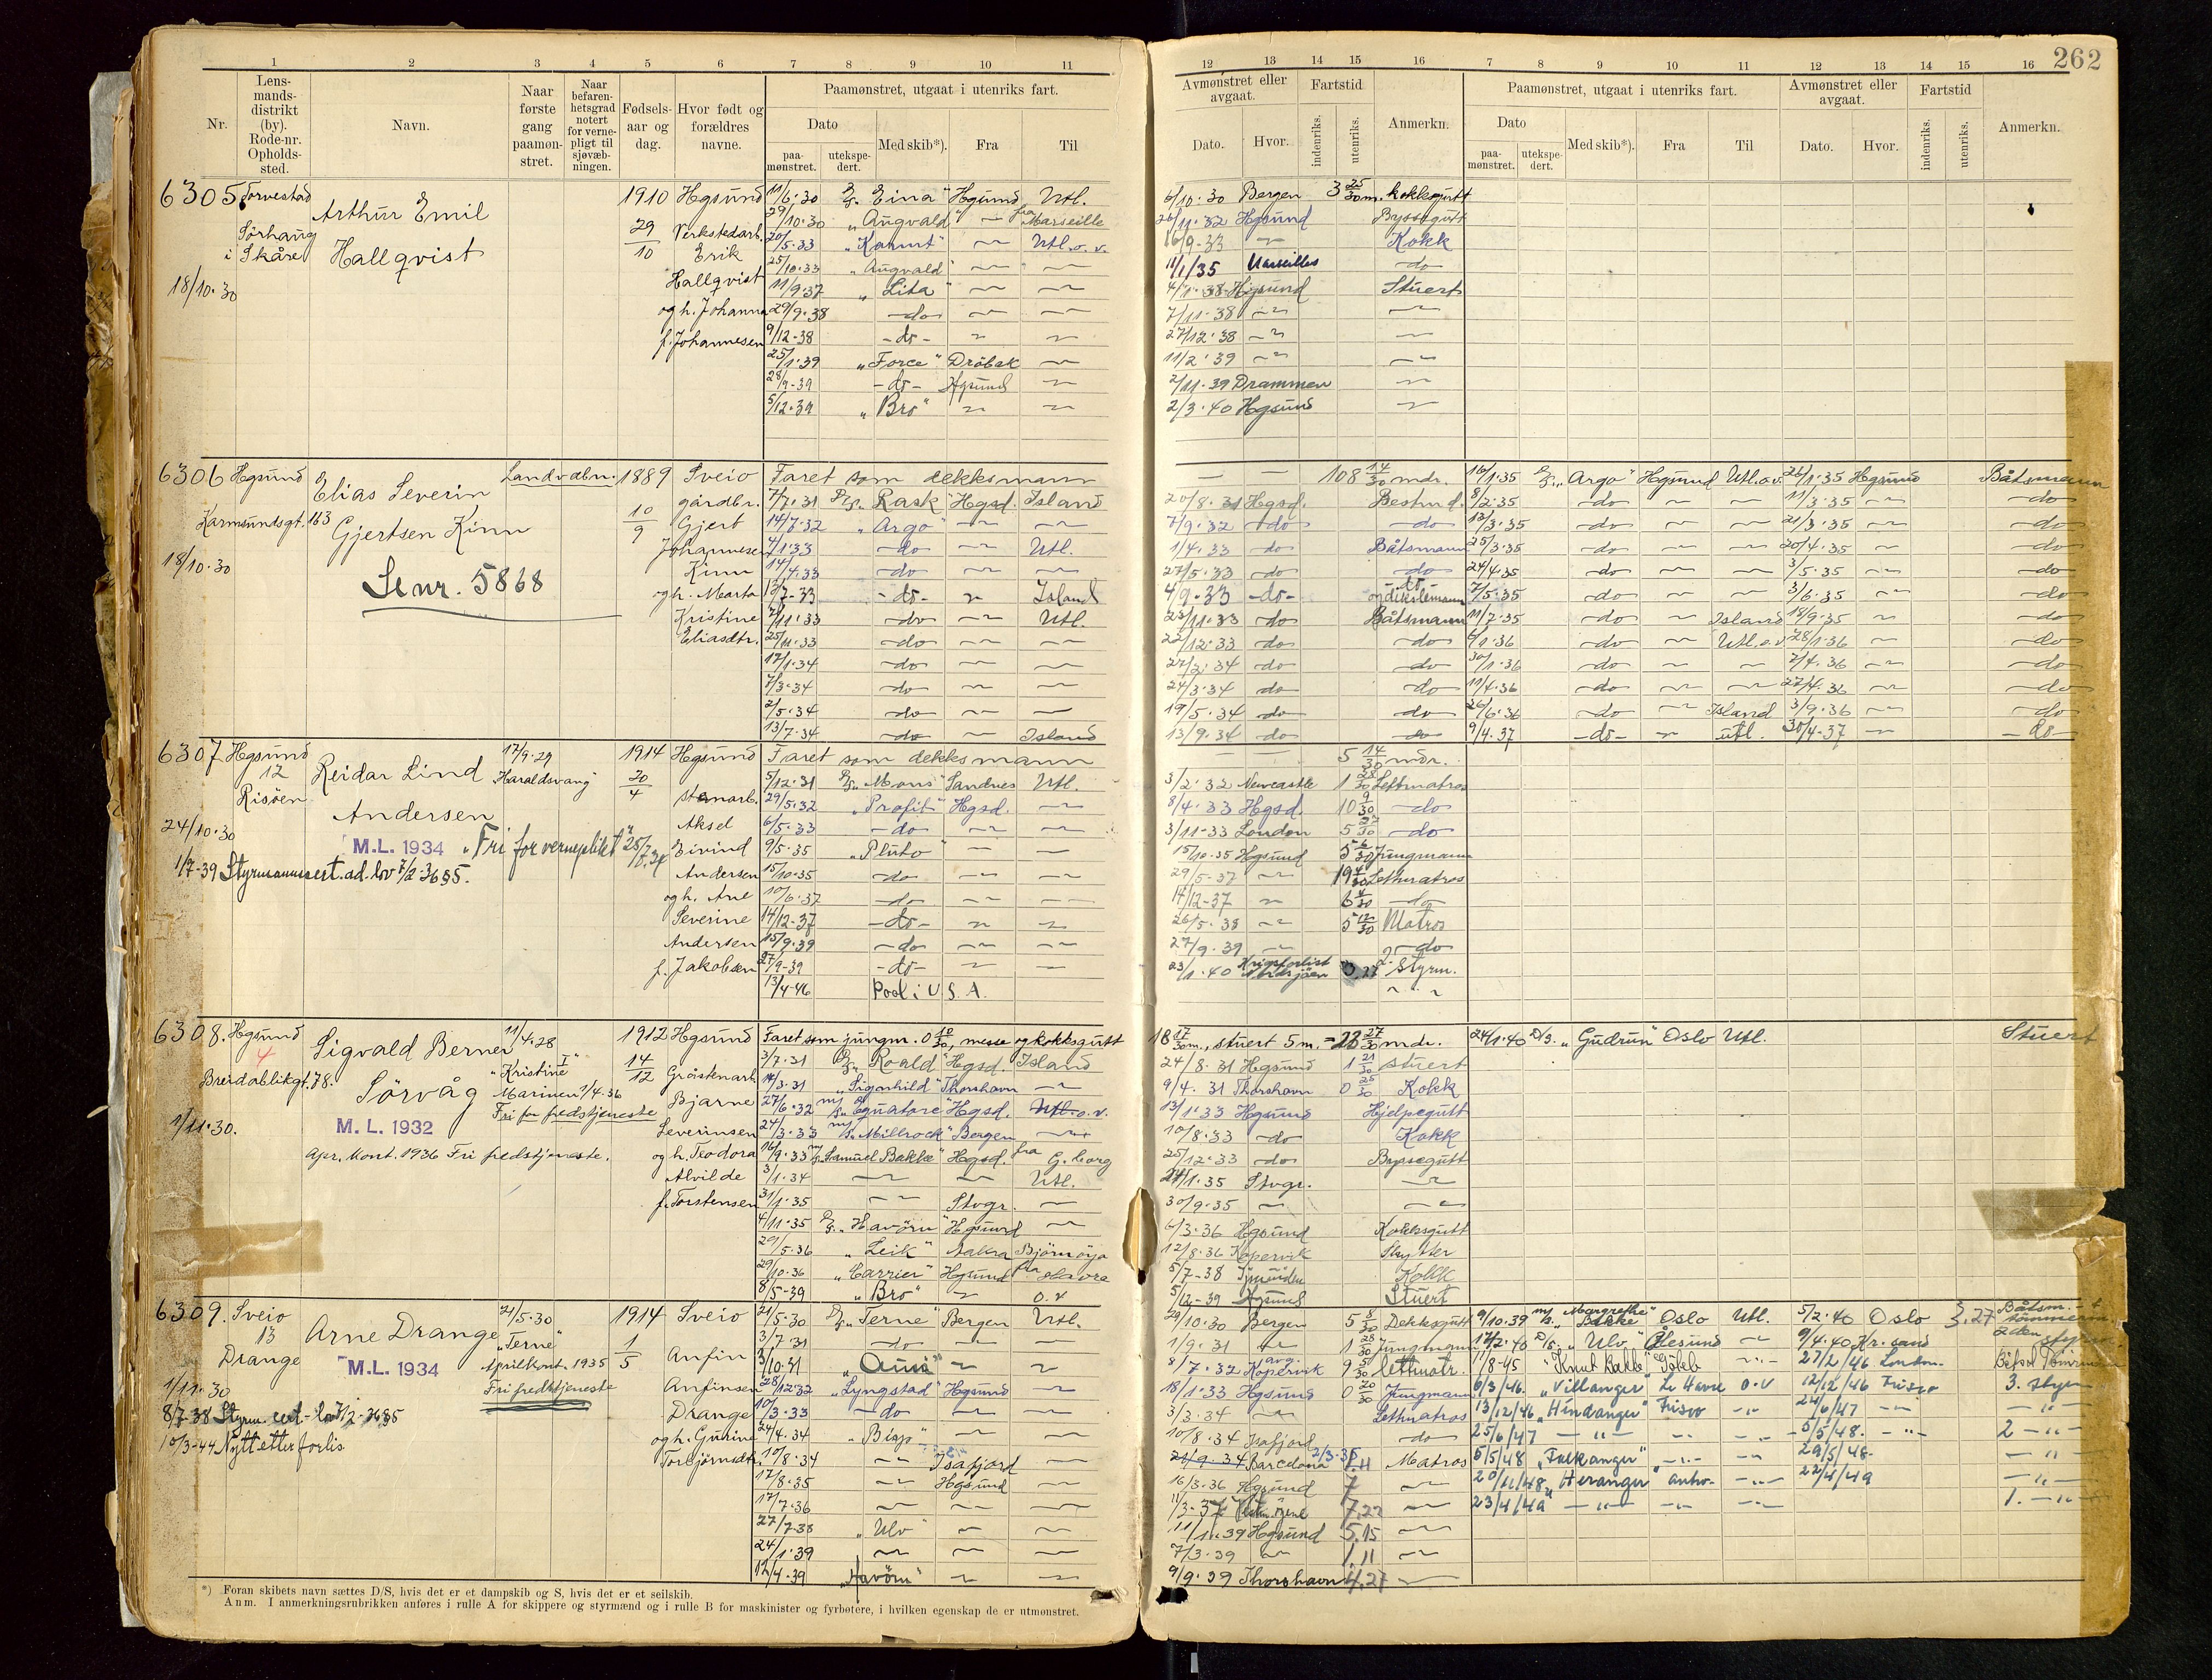 262
1 2 3 4 5 6 7 8 9 10 11
Nr.
Lens-
mands-
distrikt
(by).
Rode-nr.
Opholds-
sted.
Navn.
Naar
første
gang
paamøn-
stret.
Naar
befaren-
hetsgrad
notert
for verne-
pligt til
sjøvæb-
ningen.
Fødsels-
aar og
dag.
Hvor født og
forældres
navne.
Paamønstret, utgaat i utenriks fart.
Dato
paa-
mønstret.
utekspe-
dert.
Med skib*).
Fra
Til
12 13 14 15 16 7 8 9 10 11 12 13 14 15 16
Avmønstret eller
avgaat.
Dato.
Hvor.
Fartstid
indenriks.
utenriks.
Anmerkn.
Paamønstret, utgaat i utenriks fart.
Dato
paa-
mønstret.
utekspe-
dert.
Med skib*).
Fra
Til
Avmønstret eller
avgaat.
Dato.
Hvor.
Fartstid
indenriks.
utenriks.
Anmerkn.
6305 Torvestad
Sörhaug
i Skåre
18/10.30
Arthur Emil
Hallqvist
1910
29/10
Hgsund
Verkstedarb.
Erik
Hallqvist
og h. Johanna
f. Johannesen
11/6.30 "Eina" Hgsund Utl.
29/10.30 "Augvald" — fra Marseille
20/5.33 "Karmt" — Utl. o. v.
25/10.33 "Augvald" — —
11/9.37 "Lita" — —
29/9.38 —do— — —
9/12-38 —do— — —
25/1.39 "Force" Dröbak —
28/9-39 —do— Hgsund —
5/12.39 "Bro" — —
6/10.30 Bergen 3 25/30 m. kokksgutt
26/11.32 Hgsund Byssegutt
16/9-33 — Kokk
11/1/35 Marseilles —do—
4/1.38 Hgsund Stuert
7/11-38 — —
27/12.38 — —
11/2.39 — —
2/11-39 Drammen —
2/3.40 Hgsund —
6306 Hgsund
Karmsundsgt. 163
18/10.30
Elias Severin
Gjertsen Kinn
Se nr. 5868
Landv abn.
1889
10/9
Sveio
gårdbr.
Gjert
Johannesen
Kinn
og h. Marta
Kristine
Eliasdtr.
Faret som dekksmann
7/7.31 "Rask" Hgsd. Island
14/7.32 "Argo" — —
4/1.33 —do— — Utl.
14/4.33 —do— — —
13/7-33 —do— — Island
2/11.33 —do— — Utl.
25/11.33 —do— — —
17/1.34 —do— — —
7/3.34 —do— — —
2/5.34 —do— — —
13/7.34 —do— — Island
— — 108 14/30 mdr.
20/8.31 Hgsd. Bestmd.
7/9.32 —do— —do—
1/4.33 —do— Båtsmann
27/5.33 —do— —do—
4/9-33 —do— —do—
23/11.33 —do— Båtsmann
22/12.33 —do— —do—
27/2.34 —do— —do—
24/3.34 —do— —do—
19/5.34 —do— —do—
13/9.34 —do— —do—
16/1.35 "Argo" Hgsund Utl. o.v. 26/1.35 Hgsund Båtsmann
8/2.35 —do— — — 11/3.35 — —do—
13/3.35 —do— — — 21/3.35 — —do—
25/3.35 —do— — — 20/4.35 — —do—
24/4.35 —do— — — 3/5.35 — —do—
7/5.35 —do— — — 3/6.35 — —do—
11/7.35 —do— — Island 18/9.35 — —do—
6/1.36 —do— — Utl. o.v. 28/1.36 — —do—
30/1.36 —do— — — 7/4.36 — —do—
11/4.36 —do— — — 27/4.36 — —do—
26/6.36 —do— — Island 3/9.36 — —do—
9/4.37 —do— — Utl. 30/4-37 — —do—
6307 Hgsund
12
Risöen
24/10.30
Reidar Lind
Andersen
M.L. 1934 "Fri for verneplikt" 25/7.34
1/7-39 Styrmannscert. ad. lov 7/2.36 §5.
17/9.29
Haraldsvang
1914
20/4
Hgsund
stenarb.
Aksel
Eivind
Andersen
og h. Ane
Severine
Andersen
f. Jakobsen
Faret som dekksmann
5/12.31 "Mons" Sandnes Utl.
29/5.32 "Profit" Hgsd. —
6/5.33 —do— — —
9/5.35 "Pluto" — —
15/10.35 —do— — —
10/6.37 —do— — —
14/12-37 —do— — —
15/9.39 —do— — —
27/9-39 —do— — —
13/4-46 Pool i U.S.A.
— — 5 14/30 mdr.
3/2.32 Newcastle 1 28/30 Lettmatros
8/4.33 Hgsd. 10 9/30 —do—
3/11-33 London 5 27/30 —do—
15/10.35 Hgsund 5 6/30 Jungmann
29/5-37 — 19 4/30 Lettmatros
14/12-37 — 6 4/30 —do—
26/5.38 — 5 12/30 Matros
27/9.39 — —do—
23/1.40 Krigsforlist Nordsjöen 3,27 2. Styrm.
6308. Hgsund
4
Breidablikgt. 78.
1/11.30.
Sigvald Berner
Sörvåg
M. L. 1932
Apr. Kont. 1936 Fri fredstjeneste.
11/4.28
"Kristine I"
Marinen 1/4.36
Fri for fredstjeneste
1912
14/12
Hgsund
Gråstenarb.
Bjarne
Severinsen
og h. Teodora
Alvilde
f. Torstensen
Faret som jungm. 0 10/30, messe og kokksgutt
3/7.31 "Roald" Hgsd. Island
14/3.31 "Signhild" Thorshavn —
27/6.32 "Equatore" Hgsd. Utl. o. v.
24/3.33 "Millrock" Bergen —
16/9.33 "Samuel Bakke" Hgsd. fra G.borg
3/1.34 — — Utl.
31/1.35 — Stvgr. —
4/11.35 "Havörn" Hgsund —
29/5.36 "Leik" Aakra Björnöya
29/10.36 "Carrier" Hgsund fra
8/5-39 "Bro" — o. v
18 17/30 m., stuert 5 m. = 23 27/30 mdr.
24/8.31 Hgsund 1 21/30 Stuert
9/4.31 Thorshavn 0 25/30 Kokk
13/1.33 Hgsund Hjelpegutt
10/8.33 —do— Kokk
25/12.33 —do— Byssegutt
24/1.35 Stvgr. —
30/9.35 — —
6/3.36 Hgsund Kokksgutt
12/8.36 Kopervik Skytter
5/7-38 Ijmuiden Kokk
5/12-39 Hgsund Stuert
24/1.40 D/S. "Gudrun" Oslo Utl. Stuert
6309. Sveio
13
Drange
1/11.30
8/7-38 Styrm. cert. - lov 7/2-36 §5
10/3-44 Nytt etter forlis
Arne Drange
M.L. 1934
21/5.30
"Terne"
Aprilkont. 1935
Fri fredstjeneste
1914
1/5
Sveio
Anfin
Anfinsen
Drange
og h. Gurine
Torbjörnsdtr.
21/5.30 "Terne" Bergen Utl.
3/7.31 —do— — —
3/10.31 — —
28/12.32 "Lyngstad" Hgsund —
10/3.33 —do— — —
24/4.34 "Bisp" — —
10/8.34 — Isafjord —
17/8.35 — Hgsund —
17/7.36 — — —
27/7-38 "Ulv" — —
24/1.39 — — —
12/4.39 "Havörn" — —
29/10.30 Bergen 5 8/30 Dekksgutt
1/9.31 — 1 28/30 Jungmann
8/7.32 Kopervik 9 5/30 lettmatr.
18/1.33 Hgsund 0 20/30 Jungmann
3/3.34 — Lettmatros
10/8.34 Isafjord —do—
21/9.34 Barcelona Matros
16/3.36 Hgsund 7 —
11/3-37 7,22 —
11/1.39 Hgsund 5,15 —
7/3.39 — 1,11 —
9/9.39 Thorshavn 4,27 —
9/10.39 "Margrethe Bakke" Oslo Utl. 5/2.40 Oslo 3,27 Båtsm.
17/2.40 D/S. "Ulv" Ålesund — 9/4.40 Kr. sand
11/8-45 "Knut Bakke" Göteb — 27/2/46 London.
6/3/46. "Villanger" Le Havre o.v 12/12/46 Frisco 3. styrm
13/12/46 "Hindanger" Frisco — 24/6/47 — —
25/6/47 — — — 5/5/48. — 2 —
5/5/48 "Falkanger" — — 29/5/48. —
20/11/48 "Heranger" antw. — 22/4/49 —
23/4/49 — — — 1. —
*) Foran skibets navn sættes D/S, hvis det er et dampskib og S, hvis det er et seilskib.
Anm. I anmerkningsrubrikken anføres i rulle A for skippere og styrmænd og i rulle B for maskinister og fyrbøtere, i hvilken egenskap de er utmønstret.